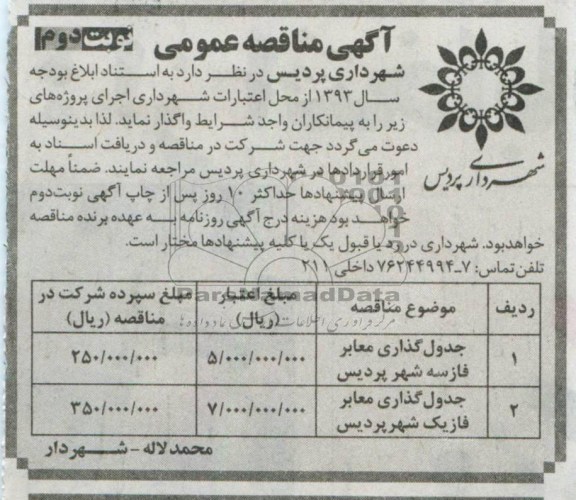 آگهی مناقصه عمومی نوبت دوم
شهرداری پردیس در نظر دارد به استناد ابلاغ بودجه
سال ۱۳۹۳ از محل اعتبارات شهرداری اجرای پروژه‌های
زیر را به پیمانکاران واجد شرایط واگذار نماید. لذا بدینوسیله
دعوت می‌گردد جهت شرکت در مناقصه و دریافت اسناد به
امور قراردادها در شهرداری پردیس مراجعه نمایند. ضمناً مهلت
ارسال پیشنهادها حداکثر ۱۰ روز پس از چاپ آگهی نوبت دوم
خواهد بود هزینه درج آگهی روزنامه به عهده برنده مناقصه
خواهد بود. شهرداری در رد یا قبول یک یا کلیه پیشنهادها مختار است.
تلفن تماس: ۷-۷۶۲۴۴۹۹۴ داخلی ۲۱۱
شهرداری پردیس
ردیف موضوع مناقصه مبلغ اعتبار (ریال) مبلغ سپرده شرکت در مناقصه (ریال)
۱ جدول گذاری معابر فاز سه شهر پردیس ۵/۰۰۰/۰۰۰/۰۰۰ ۲۵۰/۰۰۰/۰۰۰
۲ جدول گذاری معابر فاز یک شهر پردیس ۷/۰۰۰/۰۰۰/۰۰۰ ۳۵۰/۰۰۰/۰۰۰
محمد لاله - شهردار
ParsNamadData